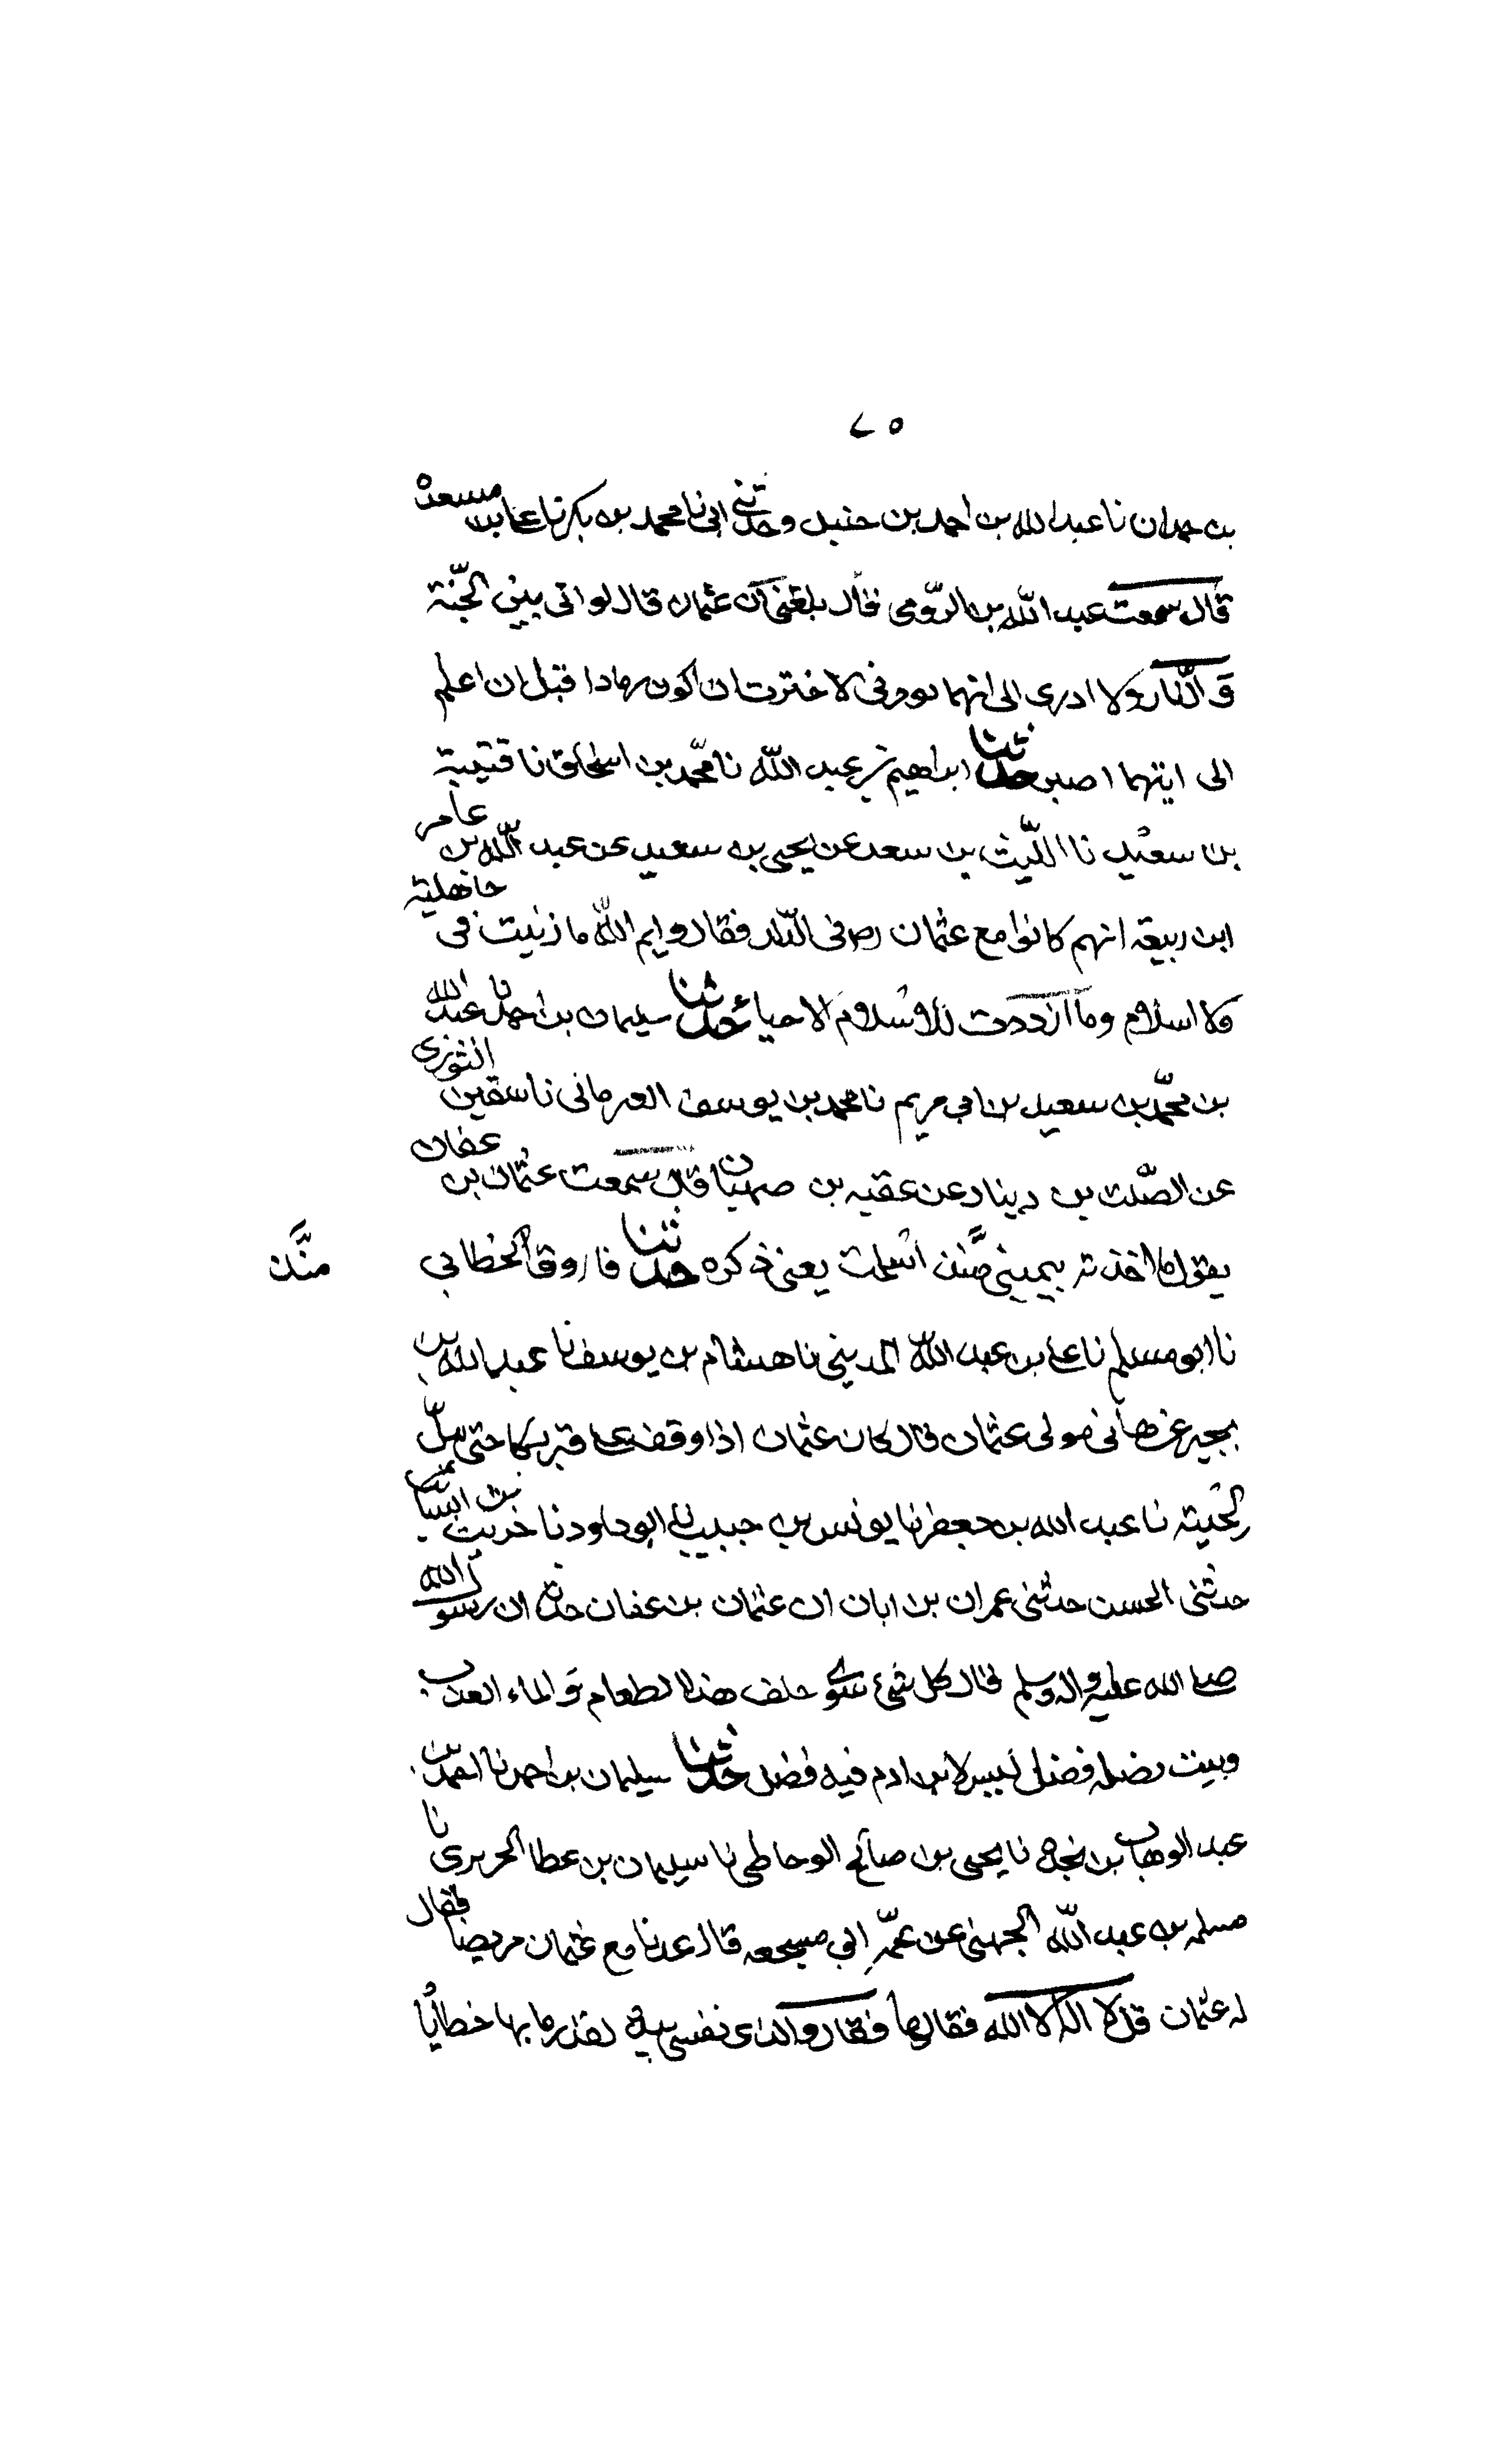 ٧٥
بن حمدان نا عبد الله بن احمد بن حنبل وحدثنى ابى نا محمد بن بكر نا على بن مسعدة
قال سمعت عبد الله بن الرّومى قال بلغنى ان عثمان قال لو انى بين الجّنة
وَ النّار ولا ادرى الى ايهما يومر فى لاخترت ان اكون رمادا قبل ان اعلم
الى ايتهما اصير حدثنا ابراهيم بن عبد الله نا محّمد بن اسحاق نا قتيبة
بن سعيد نا اللّيث بن سعد عن يحيى بن سعيد عن عبد اللّه بن عامر
ابن ربيعة انهم كانوا مع عثمان رض فى الدّار فقال وايم اللّه ما زنيت فى جاهلية
ولا اسلام وما ازددت للاسلام الا حياءً حدثنا سليمان بن احمد نا عبد الله
بن محّمد بن سعيد بن ابى مريم نا محمد بن يوسف العرمانى نا سفين الثورى
عن الصّلت بن دينار عن عقبه بن صهبان قال سمعت عثمان بن عفان
يقول ما اخذته بيمينى مُنذ اسلمت يعنى ذكره حدثنا فاروق الخطابى
منَّذ
نا ابو مسلم نا على بن عبد اللّه المدينى نا هشام بن يوسف نا عبد الله بن
بجير عن هانى مولى عثمان قال كان عثمان اذا وقف على قبر بكا حتى يبلّ
لحيته نا عبد الله بن جعفر نا يونس بن حبيب نا ابو داود نا حريث بن السائب
حدثنى الحسن حدثنى عمران بن ابان ان عثمان بن عفان حدثه ان رسول الله
صلى الله عليه واله وسلم قال كل شئ سوى حلف هذا الطعام وَ الماء العذب
وبيت يضله فضل ليس لابن ادم فيه فضل حدثنا سليمان بن احمد نا احمد بن
عبد الوهاب بن نجدة نا يحيى بن صالح الوحاطى نا سليمان بن عطا الحريرى نا
مسلمه بن عبد اللّه الجهنى عن عمّهِ ابى مسجعه قال عدنا مع عثمان مريضا فقال
له عثمان قل لا اله الا الله فقالها فقال والذى نفسى بيده لقد رما بها خطايا